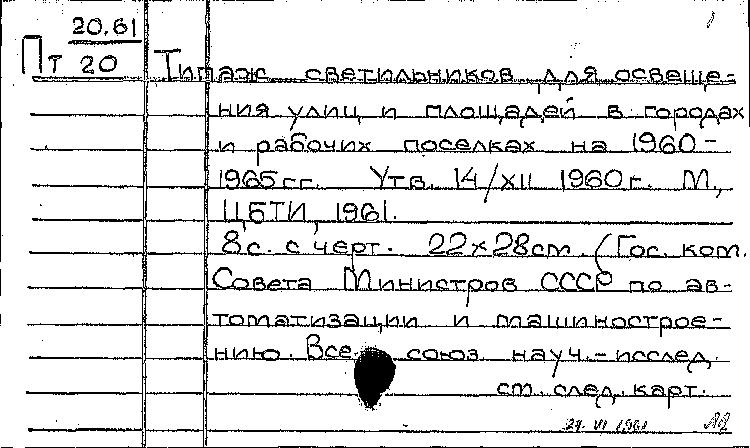 20.61
Пт 20
Типаж светильников для освеще-
ния улиц и площадей в городах
и рабочих поселках на 1960-
1965 гг. Утв. 14/XII 1960 г. М.,
ЦБТИ, 1961.
8 с. с черт. 22×28 cm. (Гос. ком.
Совета Министров СССР по ав-
томатизации и машинострое-
нию. Все союз. науч.-исслед.
см. след. карт.